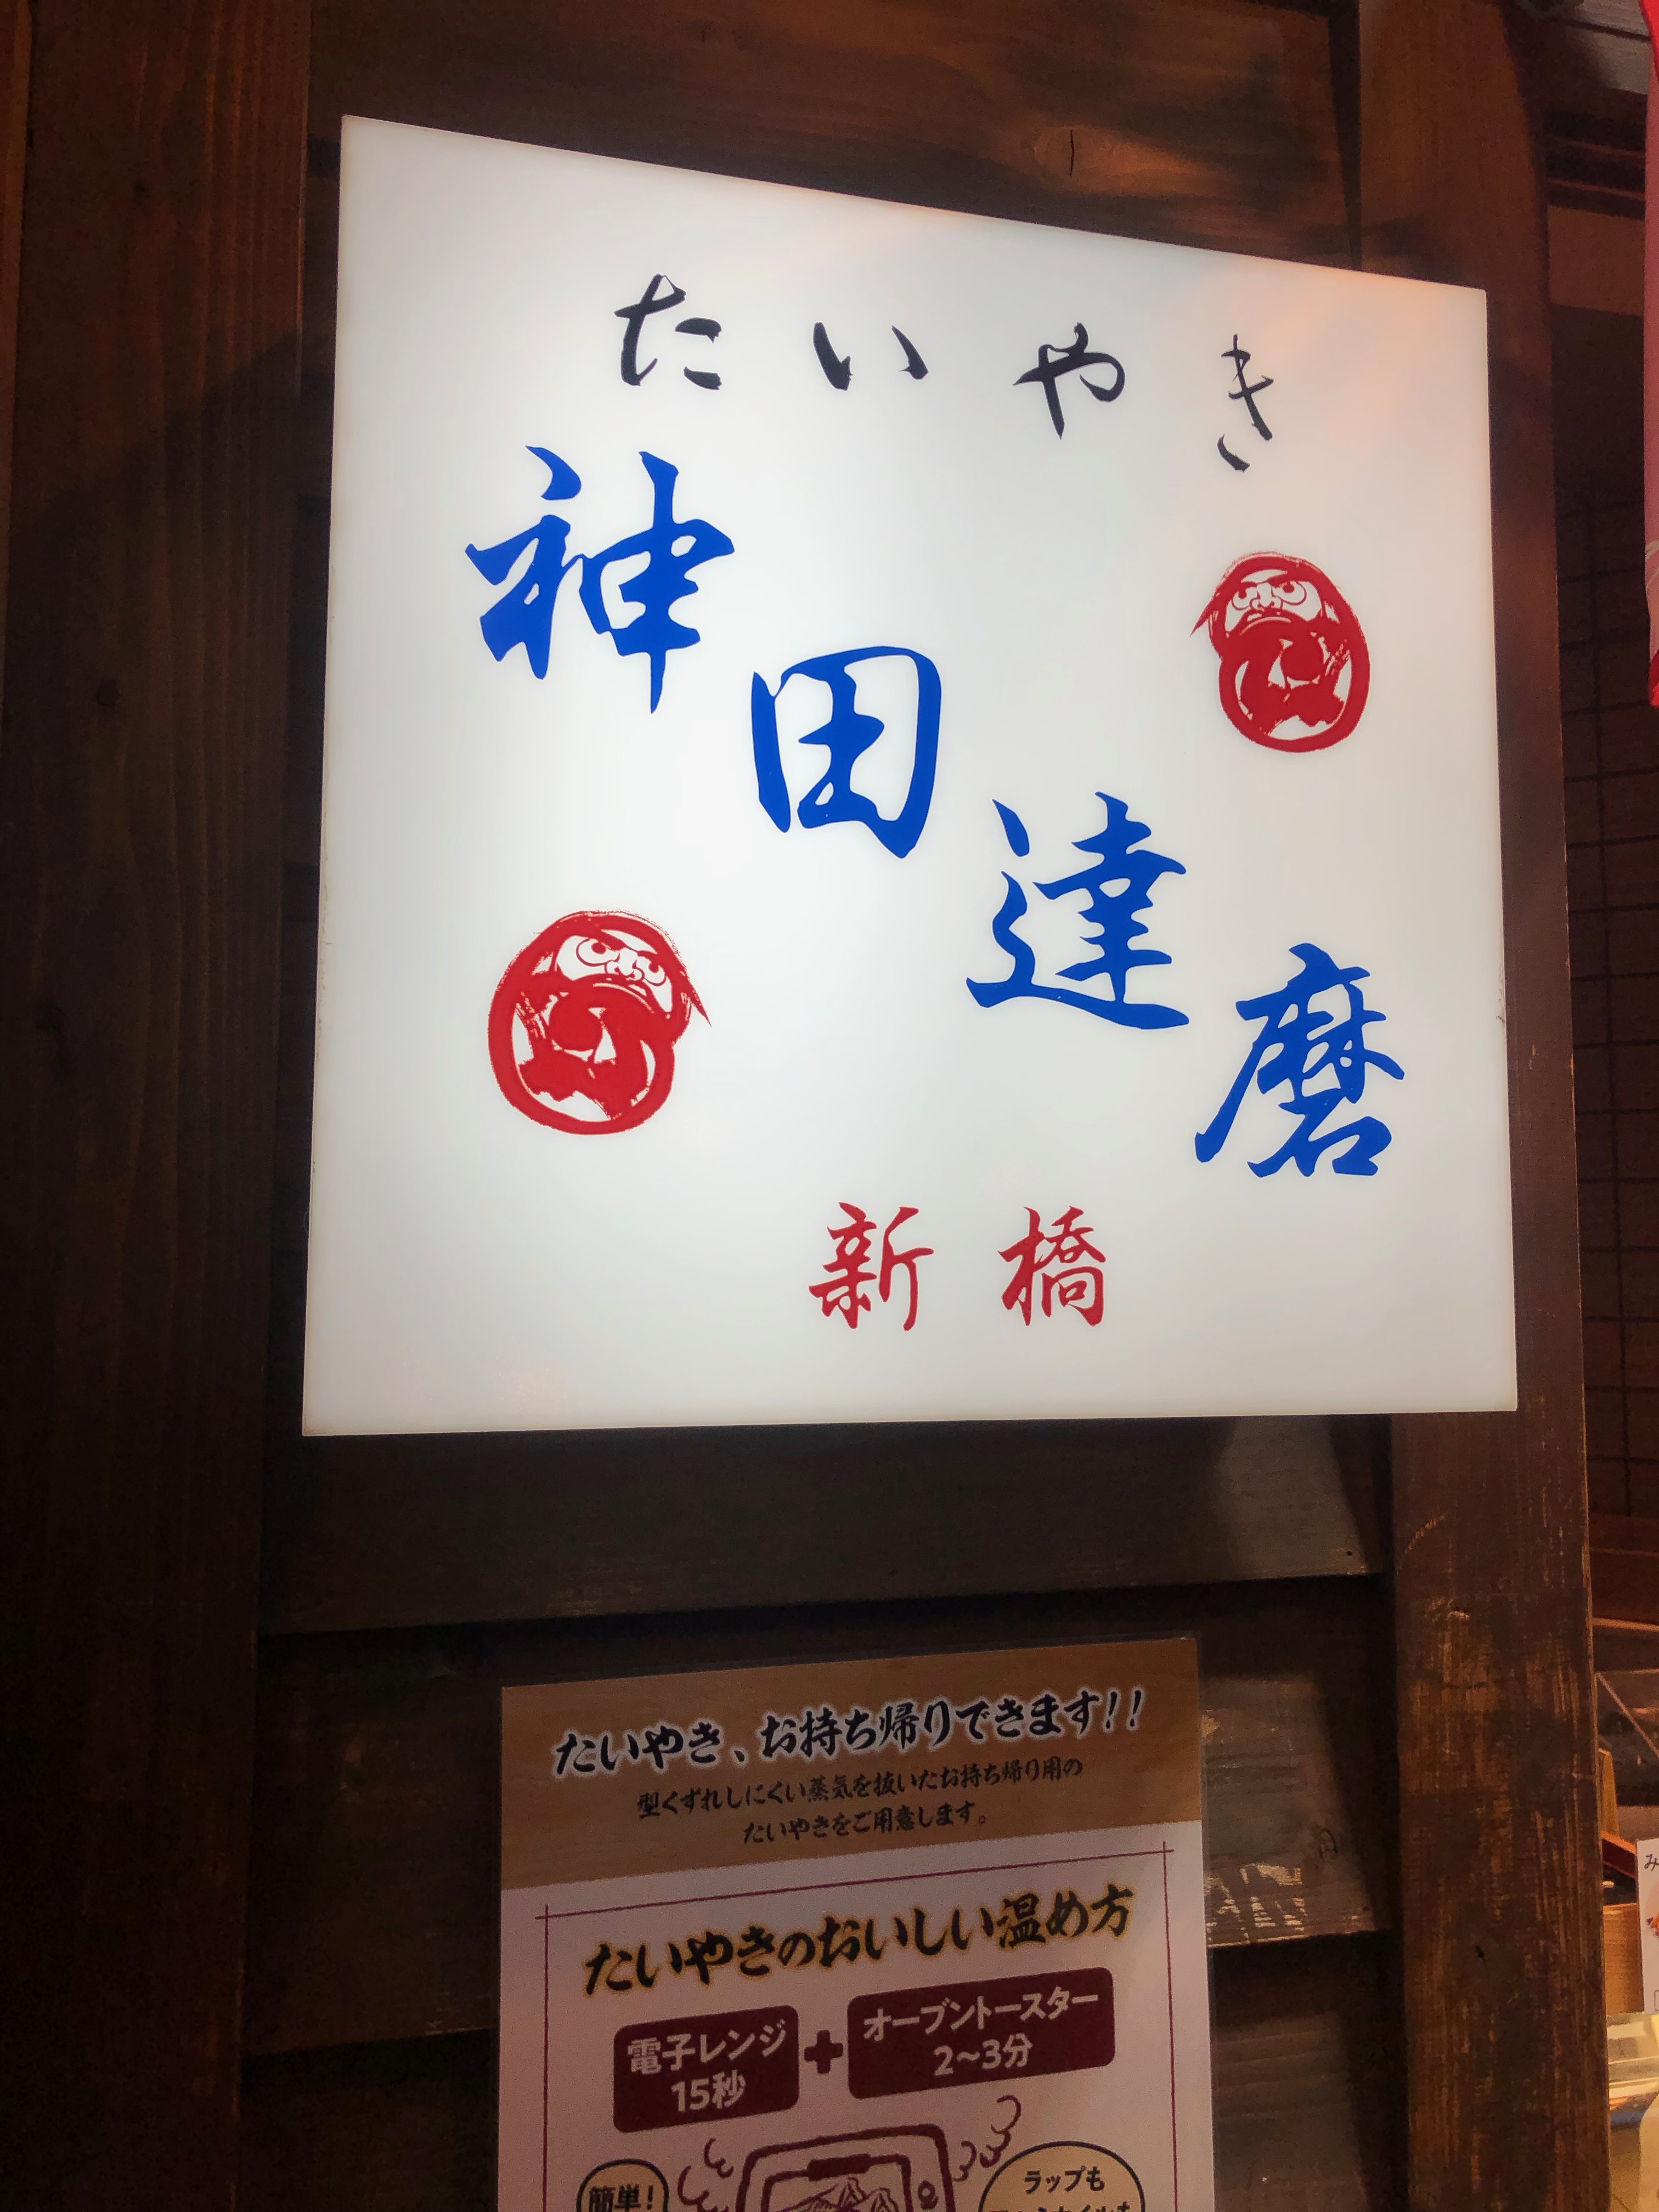 たいやき
神田達磨
新橋
たいやき、お持ち帰りできます!!
型くずれしにくい蒸気を抜いたお持ち帰り用の
たいやきをご用意します。
たいやきのおいしい温め方
電子レンジ
15秒
+
オーブントースター
2~3分
簡単!
ラップも
み